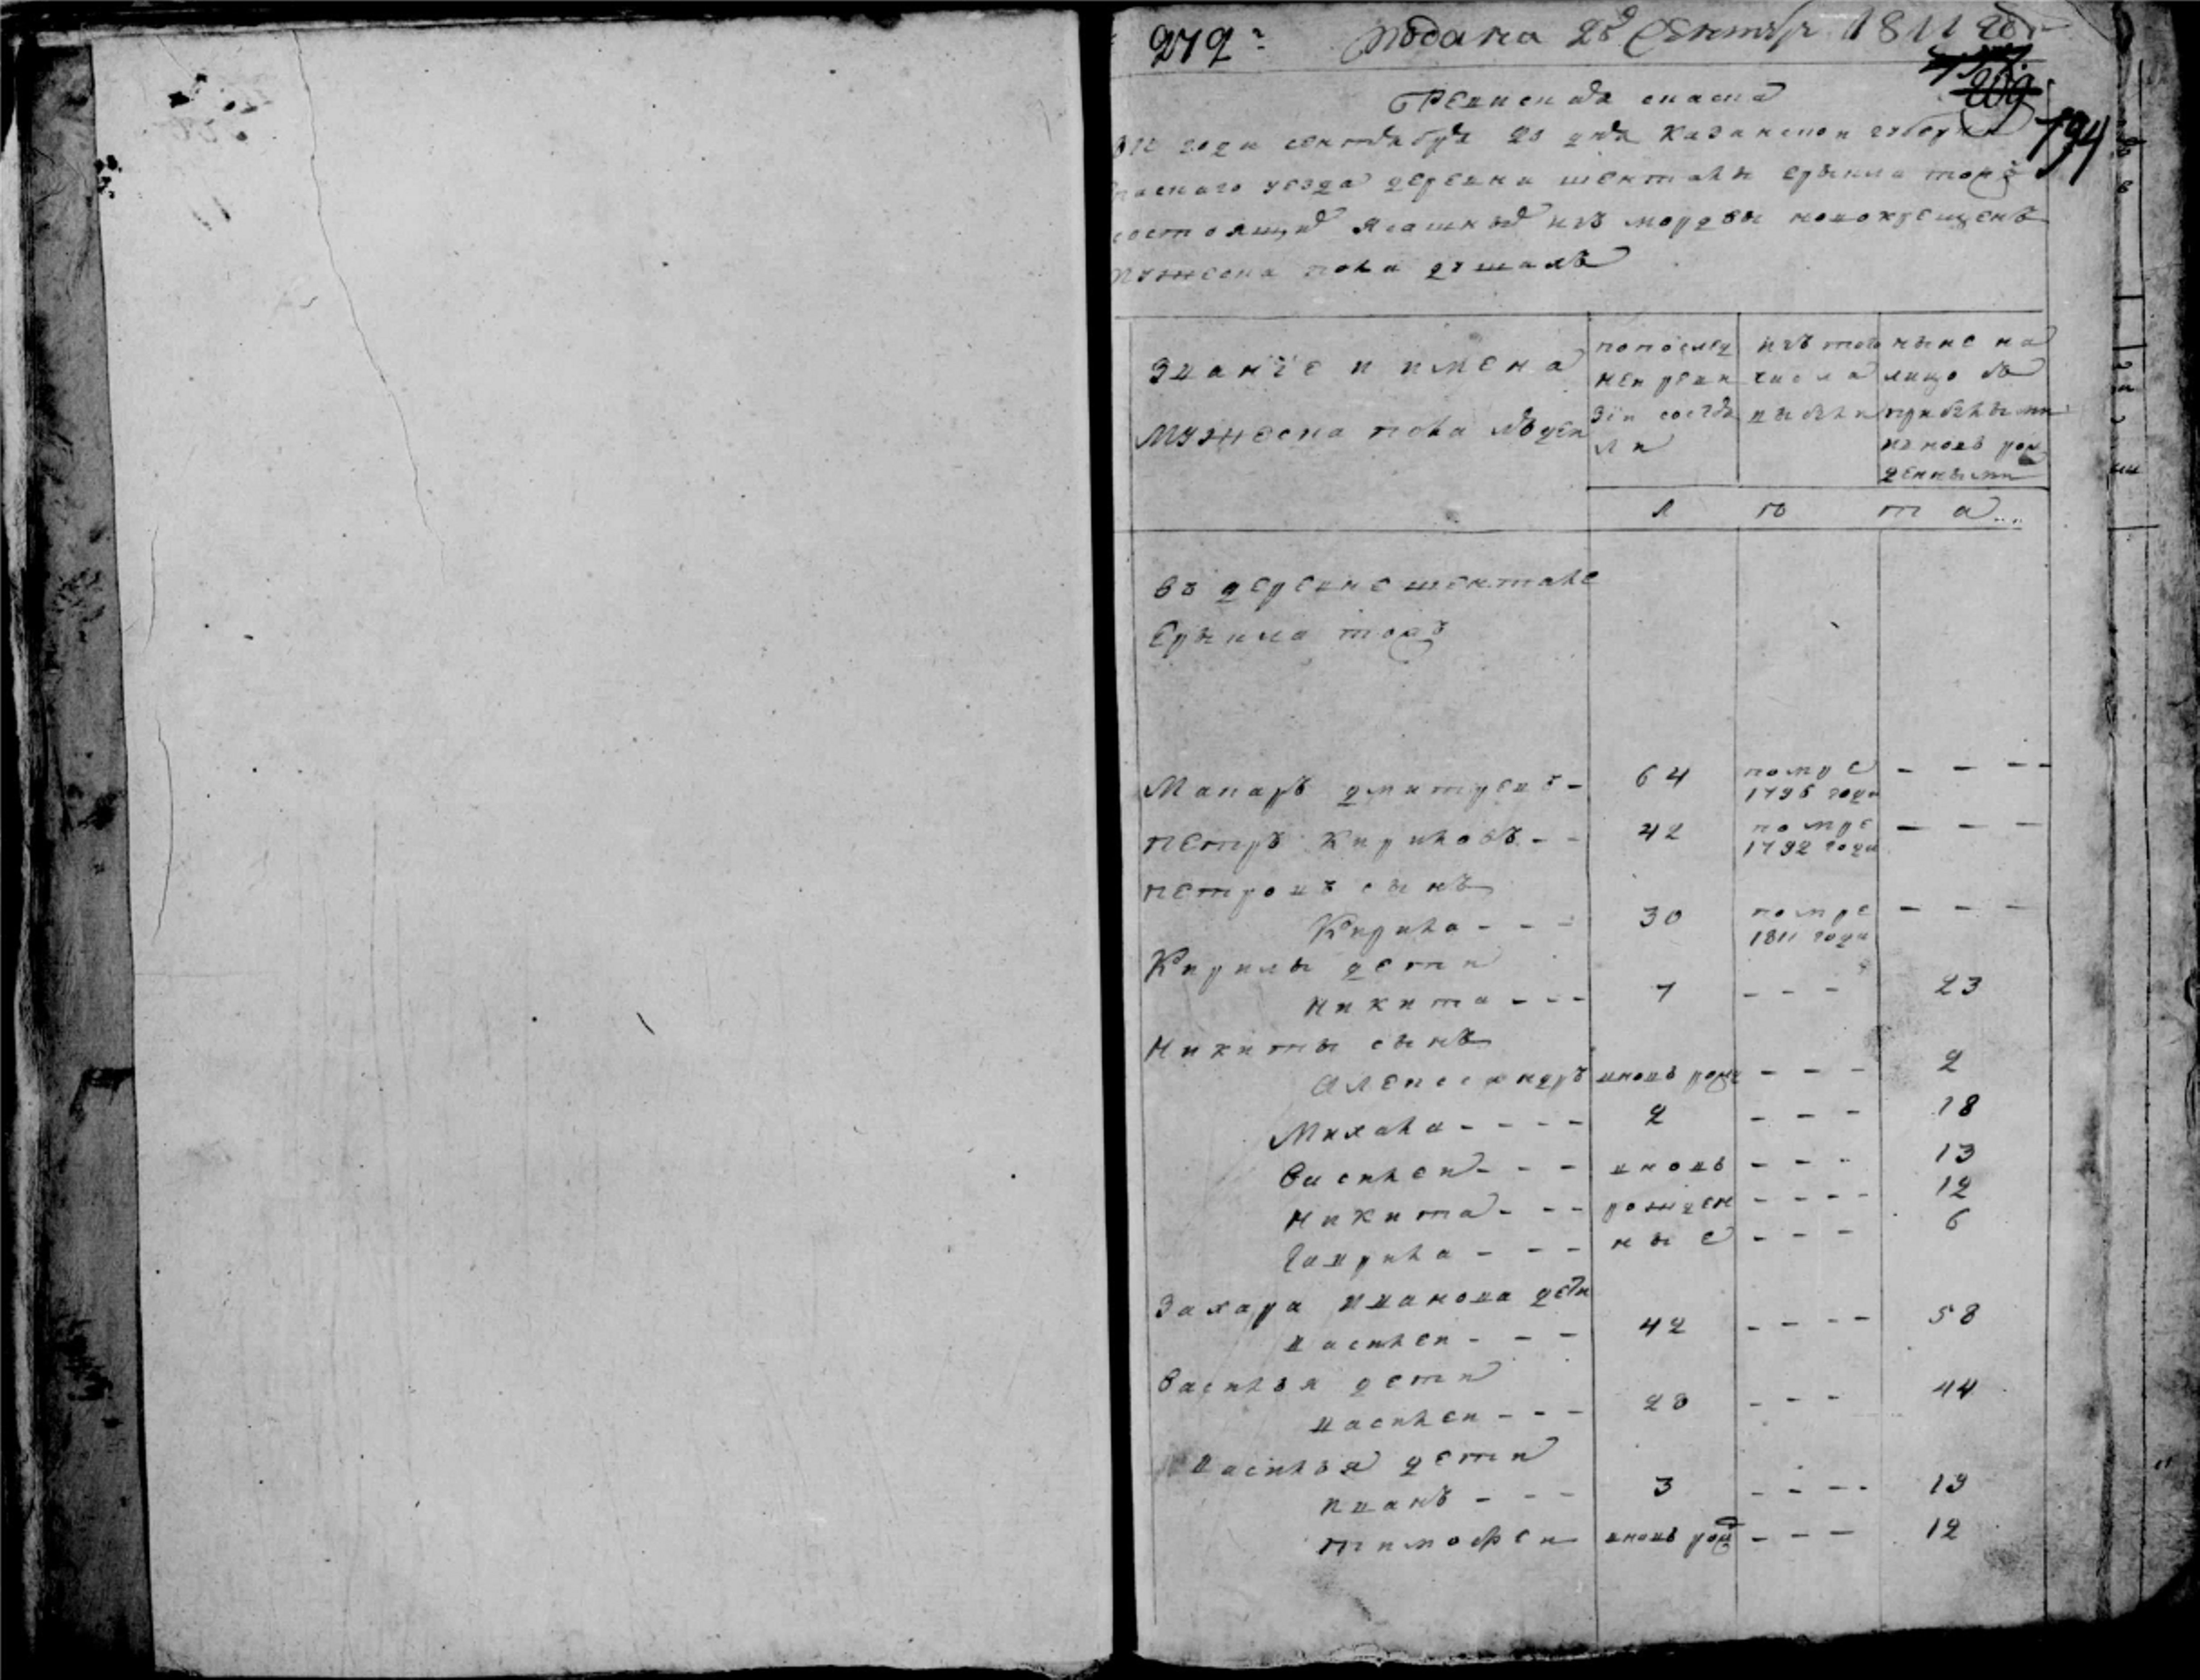 272
Подана 28 Сентябр 1811 год
209
194
Ревиская скаска
811 года сентября 20 дня Казанской губерни
Спаского уезда деревни шенталы
состоящия ясашныя изъ мордвы новокрещенъ
мужеска пола душахъ
Званïе и имена
мужеска пола людеи
попослед
неи реви
зïи состоя
ли
изъ того
числа
выбыли
ныне на
лицо съ
прибылыми
иновь рож
денными
л ѣ т а
въ деревне шентале
Макаръ дмитревъ - 64 помре - - -
1796 года
петръ Кириловъ - - 42 помре - - -
1792 года
петровъ сынъ
Кирила - - - 30 помре - - -
1811 года
Кирилы дети
никита - - - 7 - - - 23
никиты сынъ
Александръ вновь рожд - - - 2
Михаила - - - - 2 - - - 18
Василеи - - - вновь - - - 13
никита - - - рожден - - - - 12
Гаврила - - - ные - - - 6
Захара иванова дети
василеи - - - 42 - - - - 58
Василья дети
василеи - - - 28 - - - 44
василья дети
иванъ - - - 3 - - - - 19
тимофеи вновь рож - - - 12